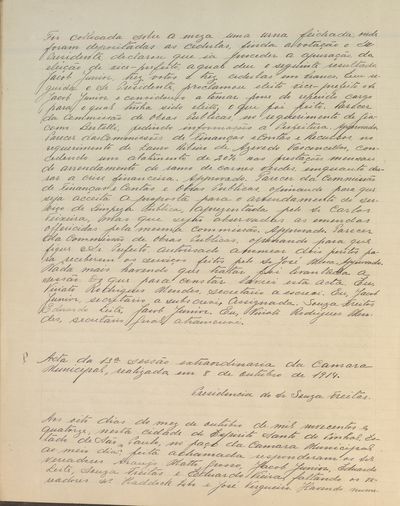 Foi collocada sobre a meza uma urna fechada onde
foram depositadas as cedulas, finda a votação o Sr.
Presidente declarou que ia proceder a apuração da
eleição de vice-prefeito a qual deu o seguinte resultado
Jacob Junior, tres votos e tres cedulas em branco. Em se-
guida o Sr. Presidente, proclamou eleito vice-prefeito ao
Sr. Jacob Junior e convidou-o a tomar posse do referido cargo
para o qual tinha sido eleito, o que foi feito. Parecer
da Commissão de Obras Publicas, no requerimento de Gia-
como, pedindo informações a Prefeitura. Approvado.
Parecer da Commissão de Finanças e Contas e Recursos no
requerimento de Lauro Ribeiro de Azevedo Vasconcellos, con-
cedendo um abatimento de 20% nas prestações mensaes
do arrendamento do ramo de carnes verdes, emquanto du-
rar a crise financeira. Approvado. Parecer da Commissão
de Finanças e Contas e Obras Publicas, opinando para que
seja acceita a proposta para o arrendamento do ser-
viço da Limpeza Publica, apresentada pelo Sr. Carlos
Teixeira, mas que sejão observadas as emendas
offerecidas pela mesma Commissão. Approvado. Parecer
da Commissão de Obras Publicas, opinando para que
fique o Sr. Prefeito autorisado a nomear dois peritos pa-
ra receberem os serviços feitos pelo Sr. José Alves. Approvado.
Nada mais havendo que tratar foi levantada a
sessão. Do que para constar lavrei esta acta. Eu,
Pinato Rodrigues Mendes, secretario a escrevi. Eu, Jacob
Junior, secretario, a subscrevi. Assignados. Souza Freitas
Eduardo Leite, Jacob Junior. Eu, Pinato Rodrigues Men-
des, secretario geral, a transcrevi.
Acta da 13ª sessão extraordinaria da Camara
Municipal, realizada em 8 de outubro de 1914.
Presidencia do Sr. Souza Freitas.
Aos oito dias do mez de outubro de mil novecentos e
quatorze, nesta cidade do Espirito Santo do Pinhal, Es-
tado de São Paulo, no paço da Camara Municipal
ao meio dia, feita a chamada responderam os Srs.
vereadores Araujo Matto Grosso, Jacob Junior, Eduardo
Leite, Souza Freitas e Eduardo Vieira, faltando os ve-
readores Srs. e José Vergueiro. Havendo nume-